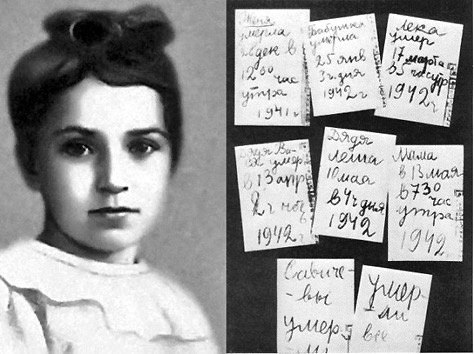 Женя
умерла
28 дек в
12 00 час
утра
1941 г
Бабушка
умерла
25 янв
3 ч дня
1942 г
Лека
умер
17 марта
в 5 час утр
1942 г
Дядя Ва-
ся умер
в 13 апр
2 ч ноч
1942 г
Дядя
Леша
10 мая
в 4 ч дня
1942
Мама
в 13 мая
в 7 30
час
утра
1942
Савиче-
-вы
умер
ли
умер-
ли
все